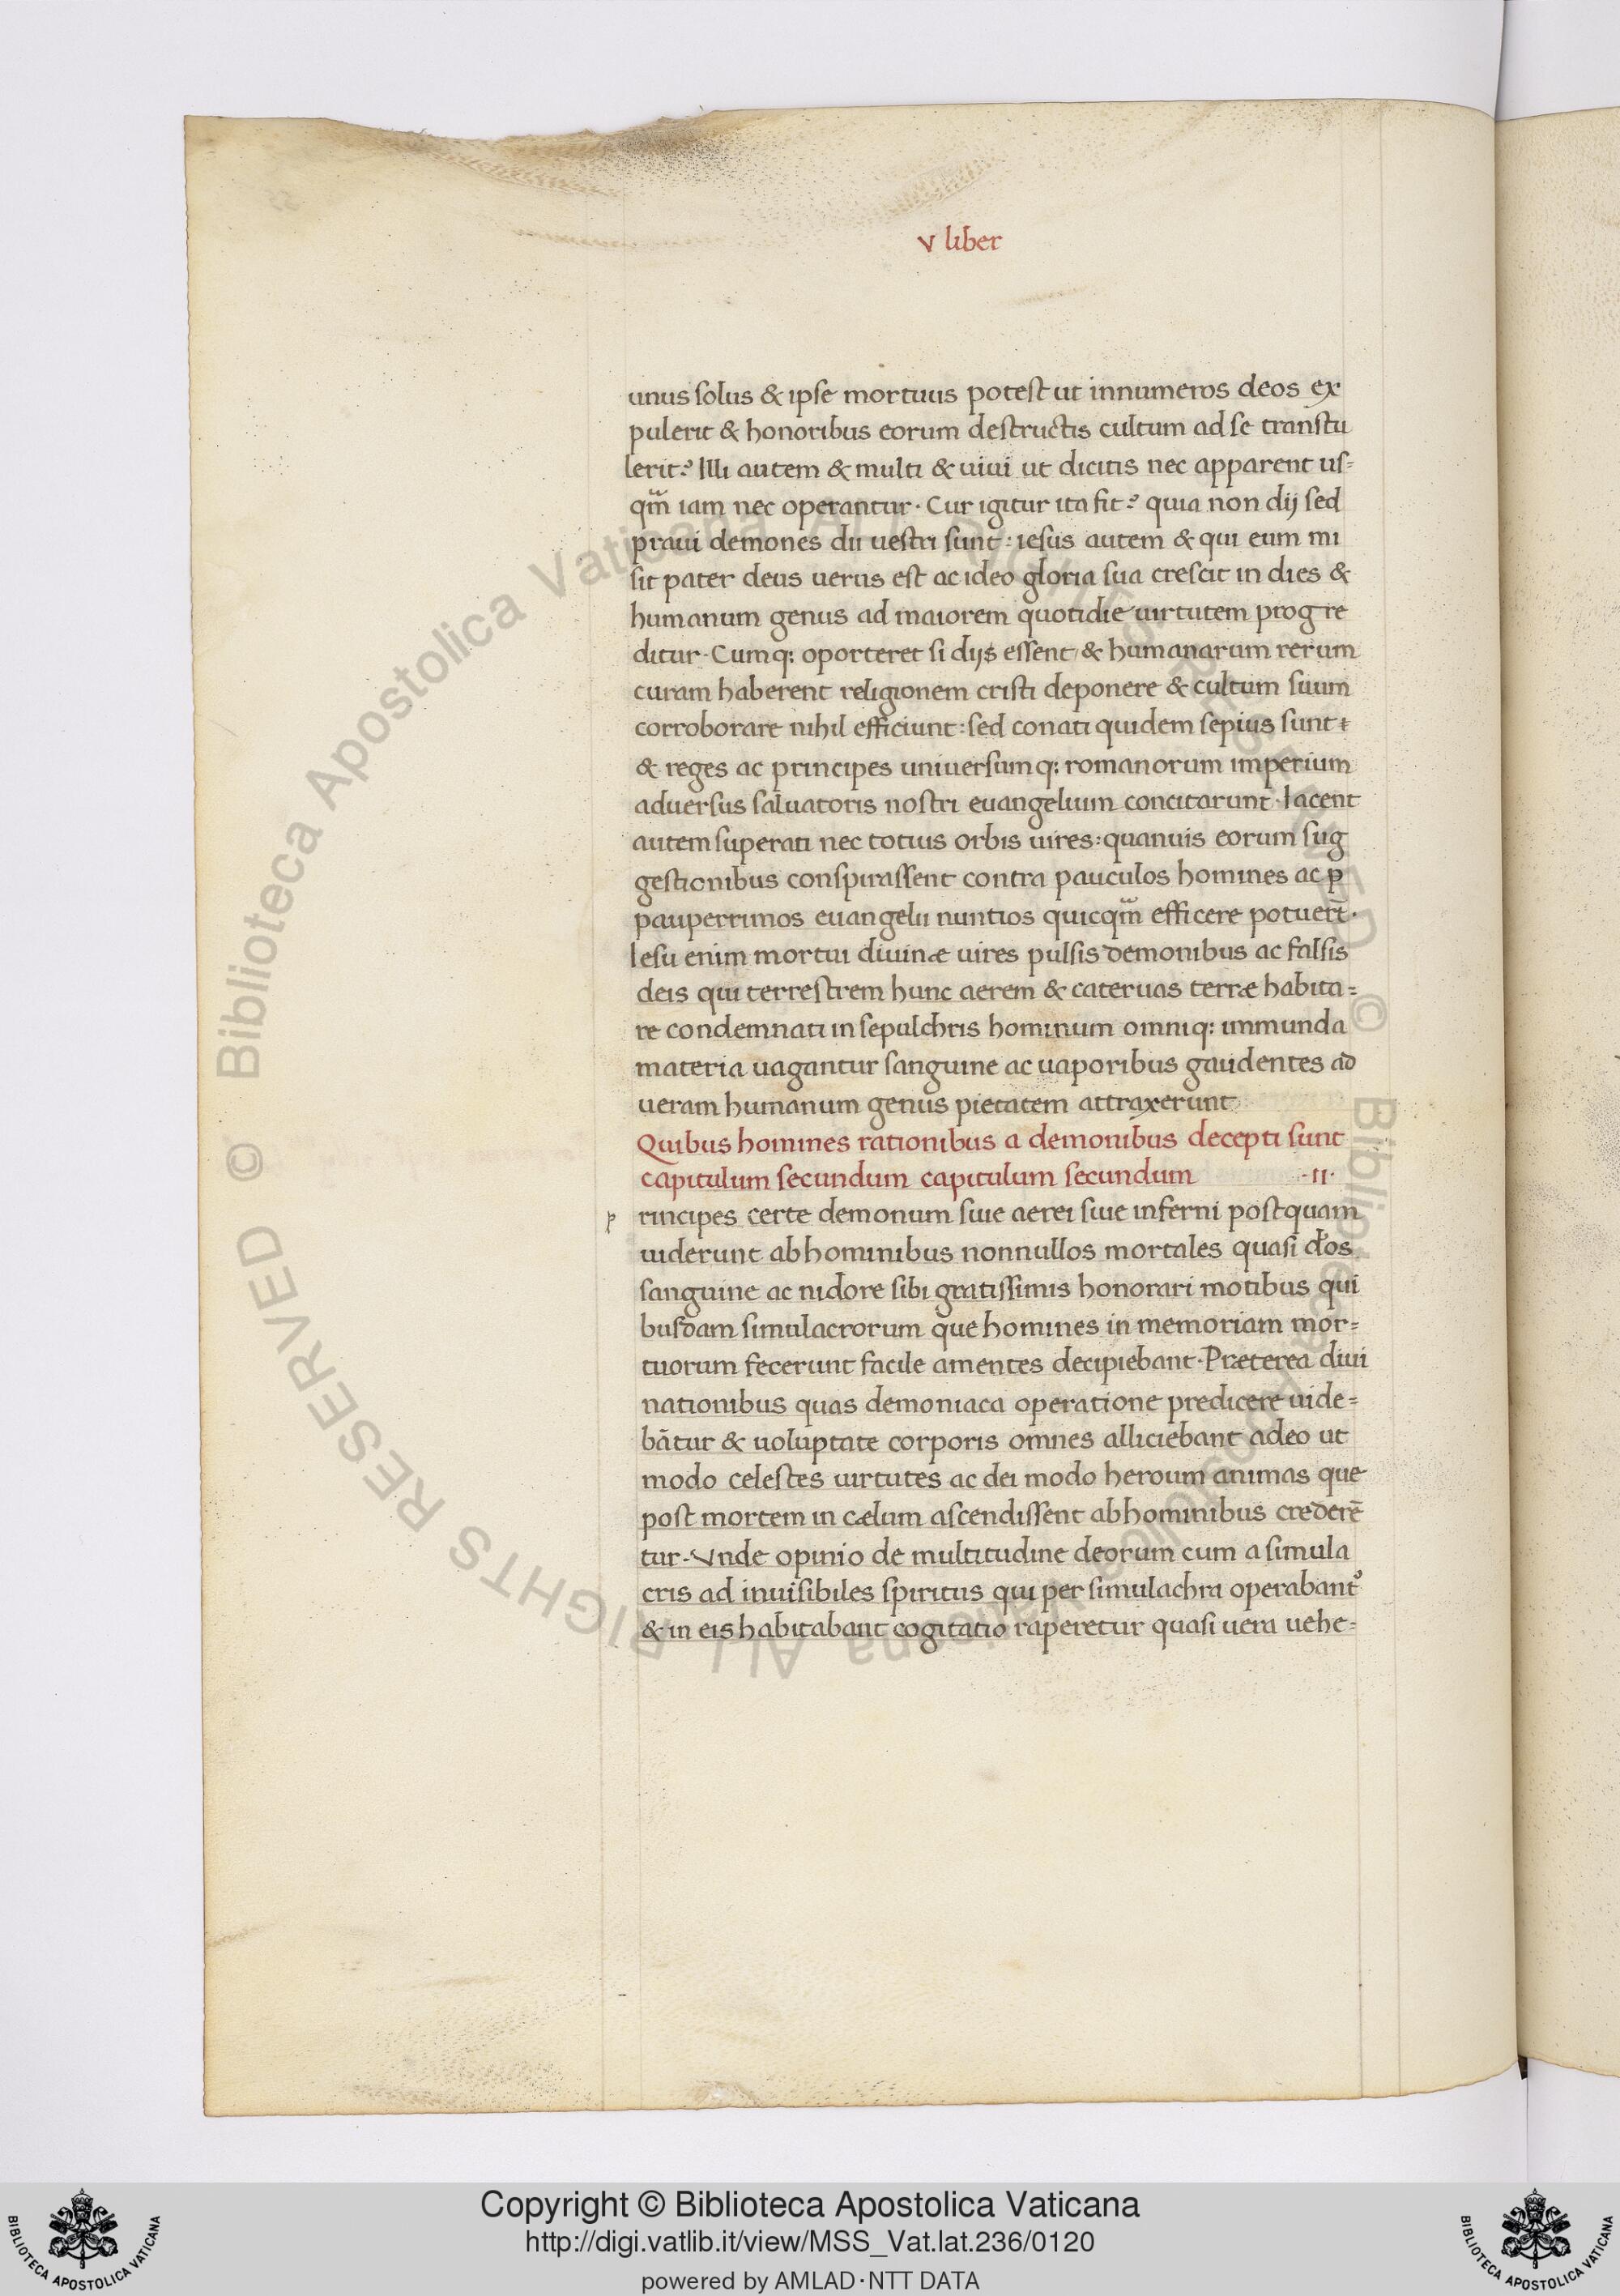 v liber
unus solus & ipse mortuus potest ut innumeros deos ex
pulerit & honoribus eorum destructis cultum ad se transtu
lerit? Illi autem & multi & uiui ut dicitis nec apparent us=
qm̃ iam nec operantur· Cur igitur ita fit? quia non dij sed
praui demones dii uestri sunt: iesus autem & qui eum mi
sit pater deus uerus est ac ideo gloria sua crescit in dies &
humanum genus ad maiorem quotidie uirtutem progre
ditur· Cumq: oporteret si dijs essent & humanarum rerum
curam haberent religionem cristi deponere & cultum suum
corroborare nihil efficiunt: sed conati quidem sepius sunt
& reges ac principes uniuersumq: romanorum imperium
aduersus saluatoris nostri euangelium concitarunt· Iacent
autem superati nec totius orbis uires: quanuis eorum sug
gestionibus conspirassent contra pauculos homines ac p
pauperrimos euangelii nuntios quicqm̃ efficere potuert̃·
Iesu enim mortui diuinæ uires pulsis demonibus ac falsis
deis qui terrestrem hunc aerem & cateruas terræ habita=
re condemnati in sepulchris hominum omniq: immunda
materia uagantur sanguine ac uaporibus gaudentes ad
ueram humanum genus pietatem attraxerunt
Quibus homines rationibus a demonibus decepti sunt
capitulum secundum capitulum secundum ·II·
p rincipes certe demonum siue aerei siue inferni postquam
uiderunt ab hominibus nonnullos mortales quasi d'os
sanguine ac nidore sibi gratissimis honorari motibus qui
busdam simulacrorum que homines in memoriam mor=
tuorum fecerunt facile amentes decipiebant· Præterea diui
nationibus quas demoniaca operatione predicere uide=
bãtur & uoluptate corporis omnes alliciebant adeo ut
modo celestes uirtutes ac dei modo heroum animas que
post mortem in cælum ascendissent ab hominibus crederẽ
tur· Vnde opinio de multitudine deorum cum a simula
cris ad inuisibiles spiritus qui per simulachra operabant᷒
& in eis habitabant cogitatio raperetur quasi uera uehe=
Copyright © Biblioteca Apostolica Vaticana
http://digi.vatlib.it/view/MSS_Vat.lat.236/0120
powered by AMLAD·NTT DATA
BIBLIOTECA APOSTOLICA VATICANA
BIBLIOTECA APOSTOLICA VATICANA
© Biblioteca Apostolica Vaticana ALL RIGHTS RESERVED © Biblioteca Apostolica Vaticana ALL RIGHTS RESERVED